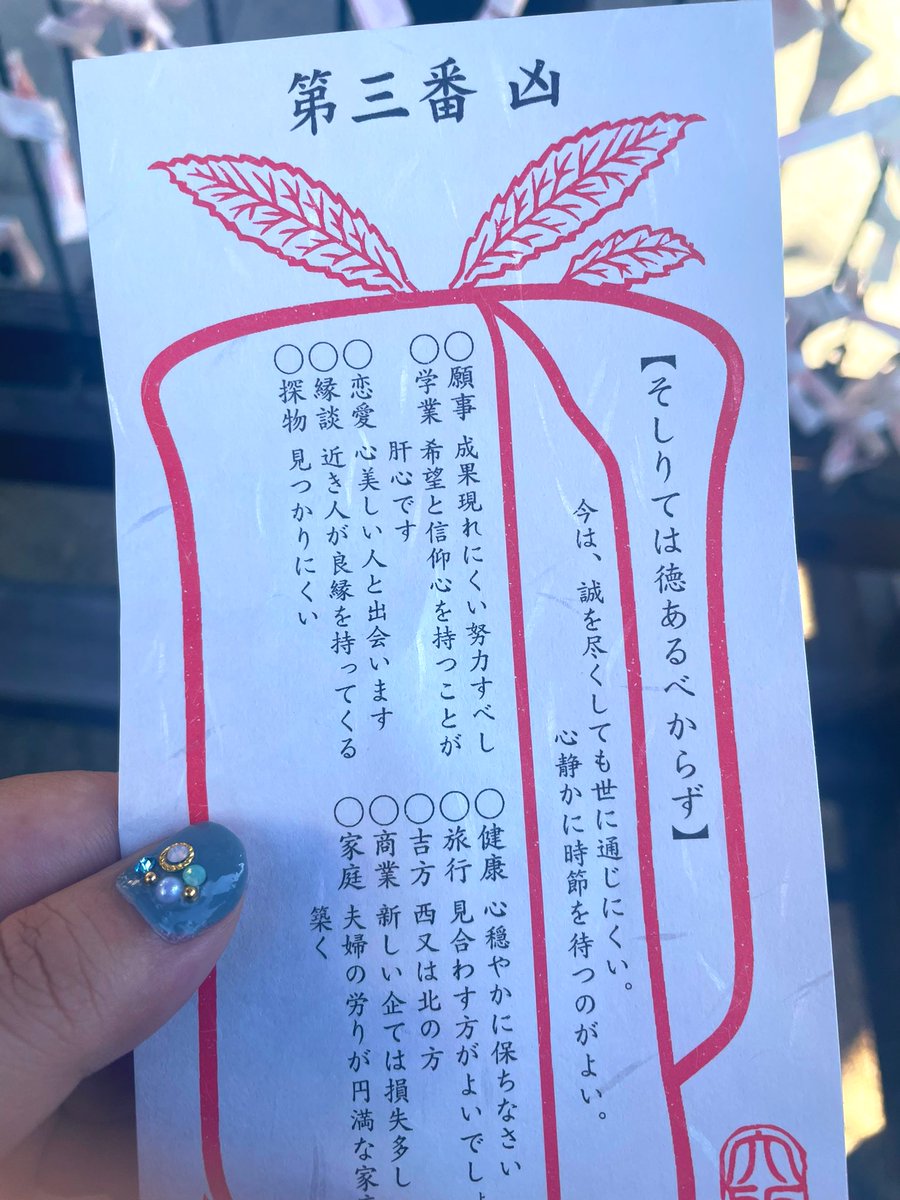 第三番 凶
【そしりては徳あるべからず】
今は、誠を尽くしても世に通じにくい。
心静かに時節を待つのがよい。
○願事 成果現れにくい努力すべし
○学業 希望と信仰心を持つことが
肝心です
○恋愛 心美しい人と出会います
○縁談 近き人が良縁を持ってくる
○探物 見つかりにくい
○健康 心穏やかに保ちなさい
○旅行 見合わす方がよいでしょ
○吉方 西又は北の方
○商業 新しい企ては損失多し
○家庭 夫婦の労りが円満な家
築く